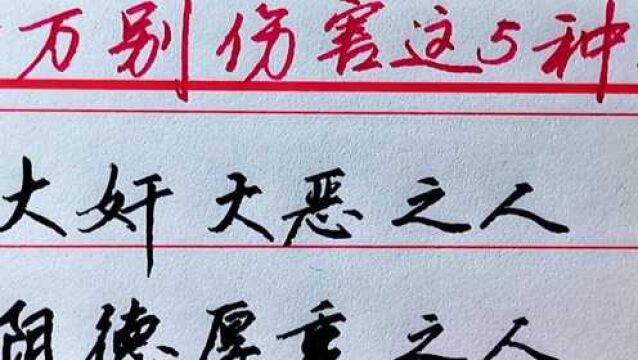 万别伤害这5种
大奸大恶之人
阴德厚重之人